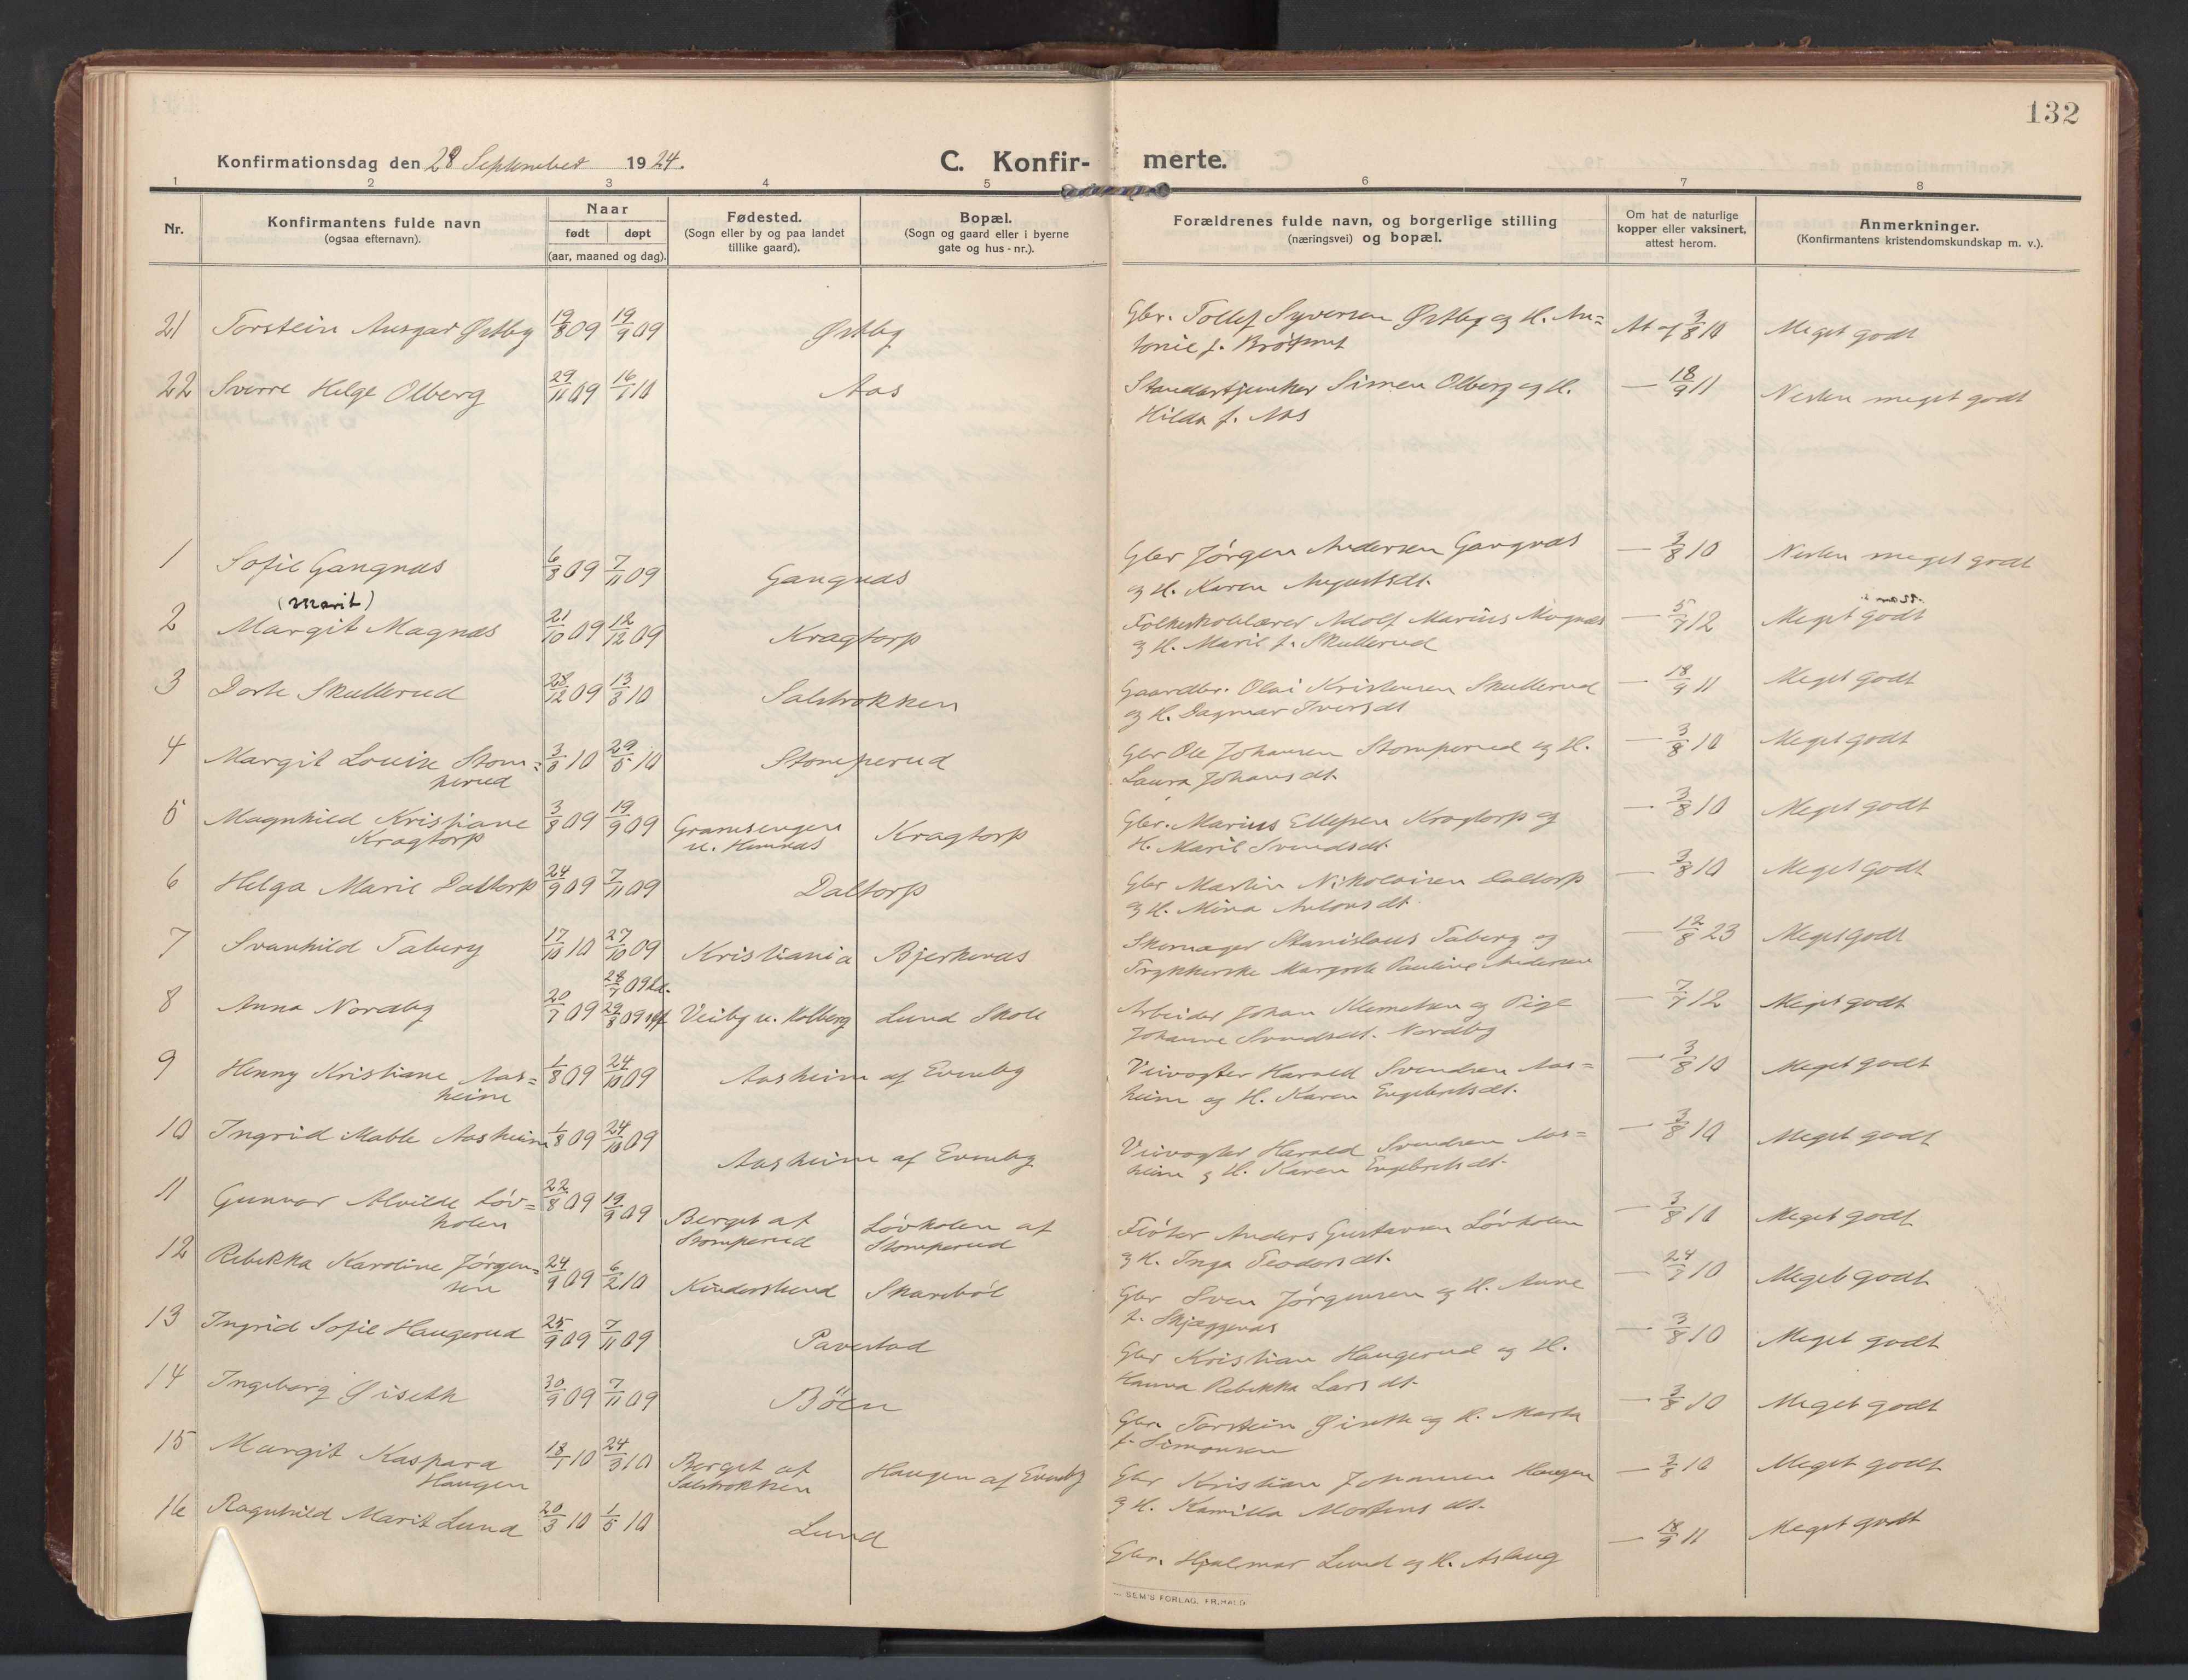 132
Konfirmationsdag den 28 September 1924.
C. Konfirmerte.
1 2 3 4 5 6 7 8
Nr.
Konfirmantens fulde navn
(ogsaa efternavn).
Naar
født døpt
(aar, maaned og dag).
Fødested.
(Sogn eller by og paa landet
tillike gaard).
Bopæl.
(Sogn og gaard eller i byerne
gate og hus-nr.).
Forældrenes fulde navn, og borgerlige stilling
(næringsvei) og bopæl.
Om hat de naturlige
kopper eller vaksinert,
attest herom.
Anmerkninger.
(Konfirmantens kristendomskundskap m. v.).
21 Torstein Ansgar Østby 19/8 09 19/9 09 Østby Gbr. Tollef Syversen Østby og H. An= At af 3/8 10 Meget godt
tonie f.
22 Sverre Helge Olberg 29/11 09 16/1 10 Aas Standartjunker Simen Olberg og H. — 18/9 11 Nesten meget godt
Hilda f. Aas
1 Sofie Gangnæs 6/8 09 7/11 09 Gangnæs Gbr Jørgen Andersen Gangnæs — 3/8 10 Nesten meget godt
og H. Karen Augustsdt.
(Marit)
2 Margit Magnæs 21/10 09 12/12 09 Kragtorp Folkeskolelærer Adolf Marius Magnæs — 5/7 12 Meget godt
og H. Marie f. Skullerud
3 Dorte Skullerud 28/12 09 13/3 10 Salstrokken Gaardbr. Olai Kristensen Skullerud — 18/9 11 Meget godt
og H. Dagmar Iversdt
4 Margit Louise Stom= 3/3 10 29/5 10 Stomperud Gbr Ole Johansen Stomperud og H. — 3/8 10 Meget godt
perud Laura Johansdt.
5 Magnhild Kristiane 3/8 09 19/9 09 Gramsengen Kragtorp Gbr. Marius Ellefsen Kragtorp og — 3/8 10 Meget godt
Kragtorp u. Hemnæs H. Marie Svendsdt.
6 Helga Marie Daltorp 24/9 09 7/11 09 Daltorp Gbr Martin Nikolaisen Daltorp — 3/8 10 Meget godt
og H. Mina Antonsdt.
7 Svanhild Taberg 17/10 10 27/10 09 Kristiania Bjerkenæs Skomager Stanislaus Taberg og — 12/8 23 Meget godt
Trykkerske Margrete Pauline Andersen
28/7 09 hd.
8 Anna Nordby 20/7 09 29/8 09 stf Veiby u. Kolberg Lund Skole Arbeider Johan Klemetsen og Pige — 7/7 12 Meget godt
Johanne Svendsdt. Nordby
9 Henny Kristiane Aas= 1/8 09 24/10 09 Aasheim af Evenby Veivogter Harald Svendsen Aas= — 3/8 10 Meget godt
heim heim og H. Karen Engebretsdt.
10 Ingrid Mable Aasheim 1/8 09 24/10 09 Aasheim af Evenby Veivogter Harald Svendsen Aas= — 3/8 10 Meget godt
heim og H. Karen Engebretsdt.
11 Gunvor Alvilde Løv= 22/8 09 19/9 09 Berget af Løvholen af Fløter Anders Gustavsen Løvholen — 3/8 10 Meget godt
holen Stomperud Stomperud og H. Inga Teodorsdt.
12 Rebekka Karoline Jørgen= 24/9 09 6/2 10 Skarebøl Gbr Sven Jørgensen og H. Anne — 24/7 10 Meget godt
sen f. Skjæggenæs
13 Ingrid Sofie Haugerud 25/9 09 7/11 09 Pavestad Gbr Kristian Haugerud og H. — 3/8 10 Meget godt
Hanna Rebekka Larsdt.
14 Ingeborg Øiseth 30/9 09 7/11 09 Böen Gbr. Torstein Øiseth og H. Marta — 3/8 10 Meget godt
f. Simonsen
15 Margit Kaspara 18/1 10 24/3 10 Berget af Haugen af Evenby Gbr Kristian Johannesen Haugen — 3/8 10 Meget godt
Haugen Salstrokken og H. Kamilla Mortensdt.
16 Ragnhild Marit Lund 20/3 10 1/5 10 Lund Gbr. Hjalmar Lund og H. Aslaug — 18/9 11 Meget godt
SEM'S FORLAG, FR.HALD